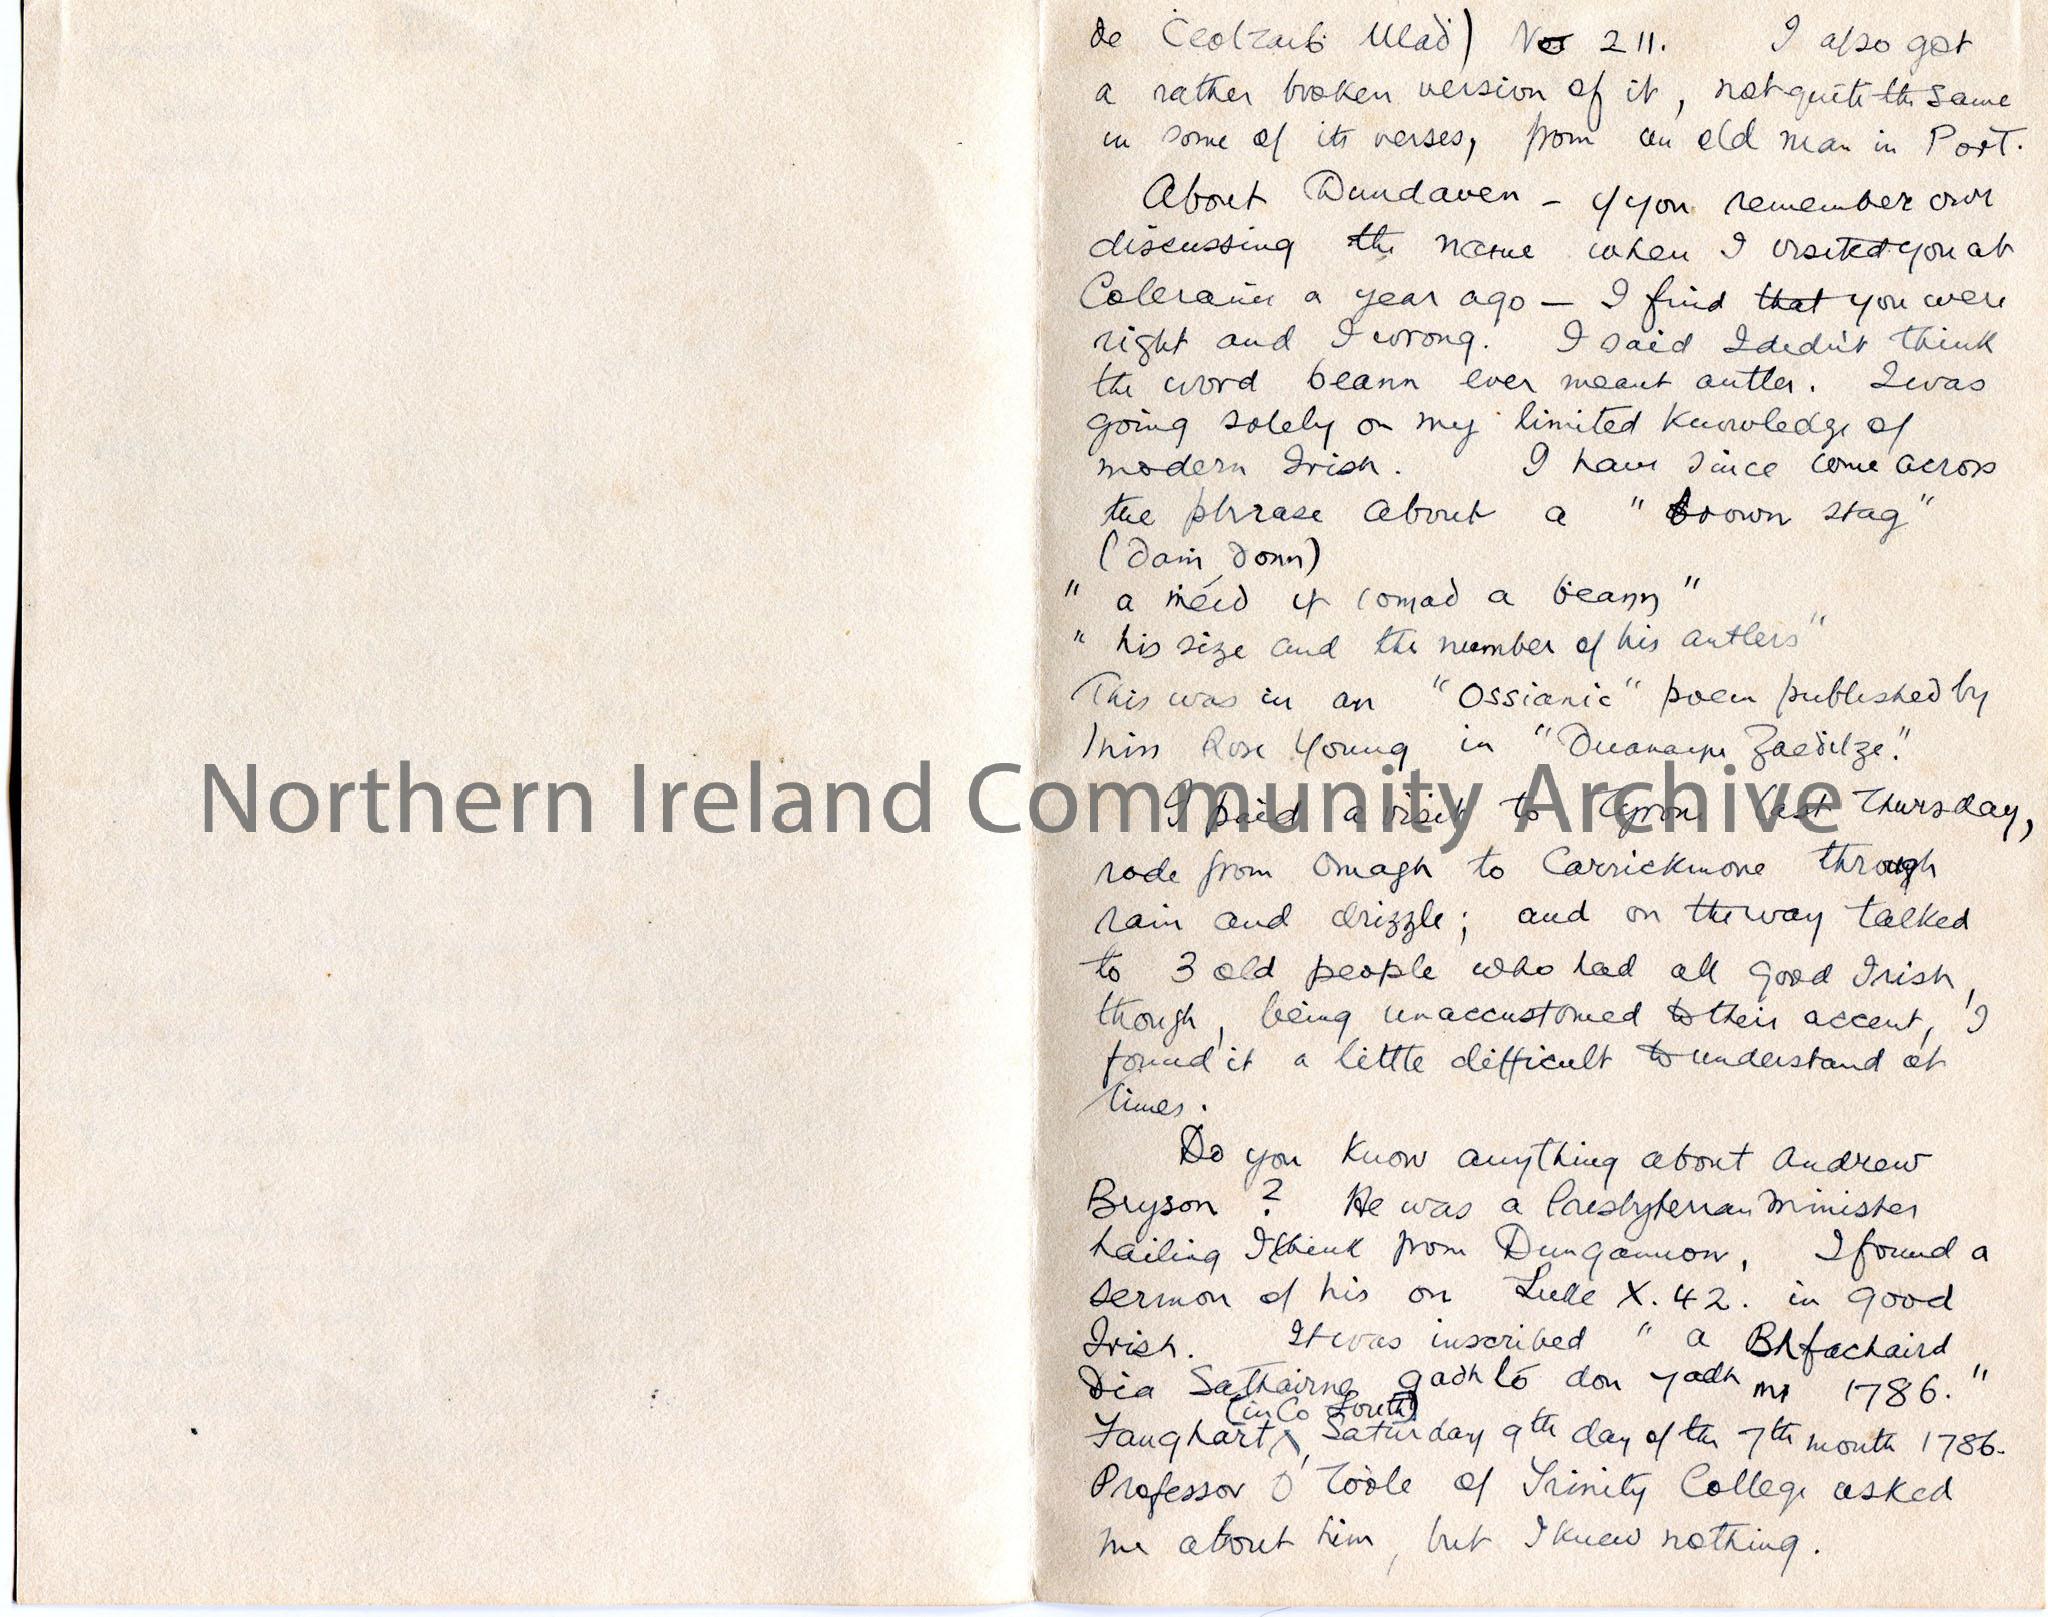 de Ċeolṫaiḃ Ulaḋ) No 211. I also got
a rather broken version of it, not quite the same
in some of its verses, from an old man in Port.
About Dundaven - if you remember our
discussing the name when I visited you at
Coleraine a year ago - I find that you were
right and I wrong. I said I didn't think
the word beann ever meant antler. I was
going solely on my limited knowledge of
modern Irish. I have since come across
the phrase about a "brown stag"
(Daiṁ donn)
"a ṁéid is ċomad a beann"
"his size and the number of his antlers"
This was in an "Ossianic" poem published by
Miss Rose Young in "Duanaire Gaeḋilge."
Northern Ireland Community Archive
I paid a visit to Tyrone last Thursday,
rode from Omagh to Carrickmore through
rain and drizzle; and on the way talked
to 3 old people who had all good Irish,
though, being unaccustomed to their accent, I
found it a little difficult to understand at
times.
Do you know anything about Andrew
Bryson? He was a Presbyterian minister
hailing I think from Dungannon. I found a
sermon of his on Luke X. 42. in good
Irish. It was inscribed "a Bhfachaird
Dia Sathairne 9adh ló don 7adh mi 1786."
(in Co Louth)
Faughart, Saturday 9th day of the 7th month 1786.
Professor O'Toole of Trinity College asked
me about him, but I knew nothing.